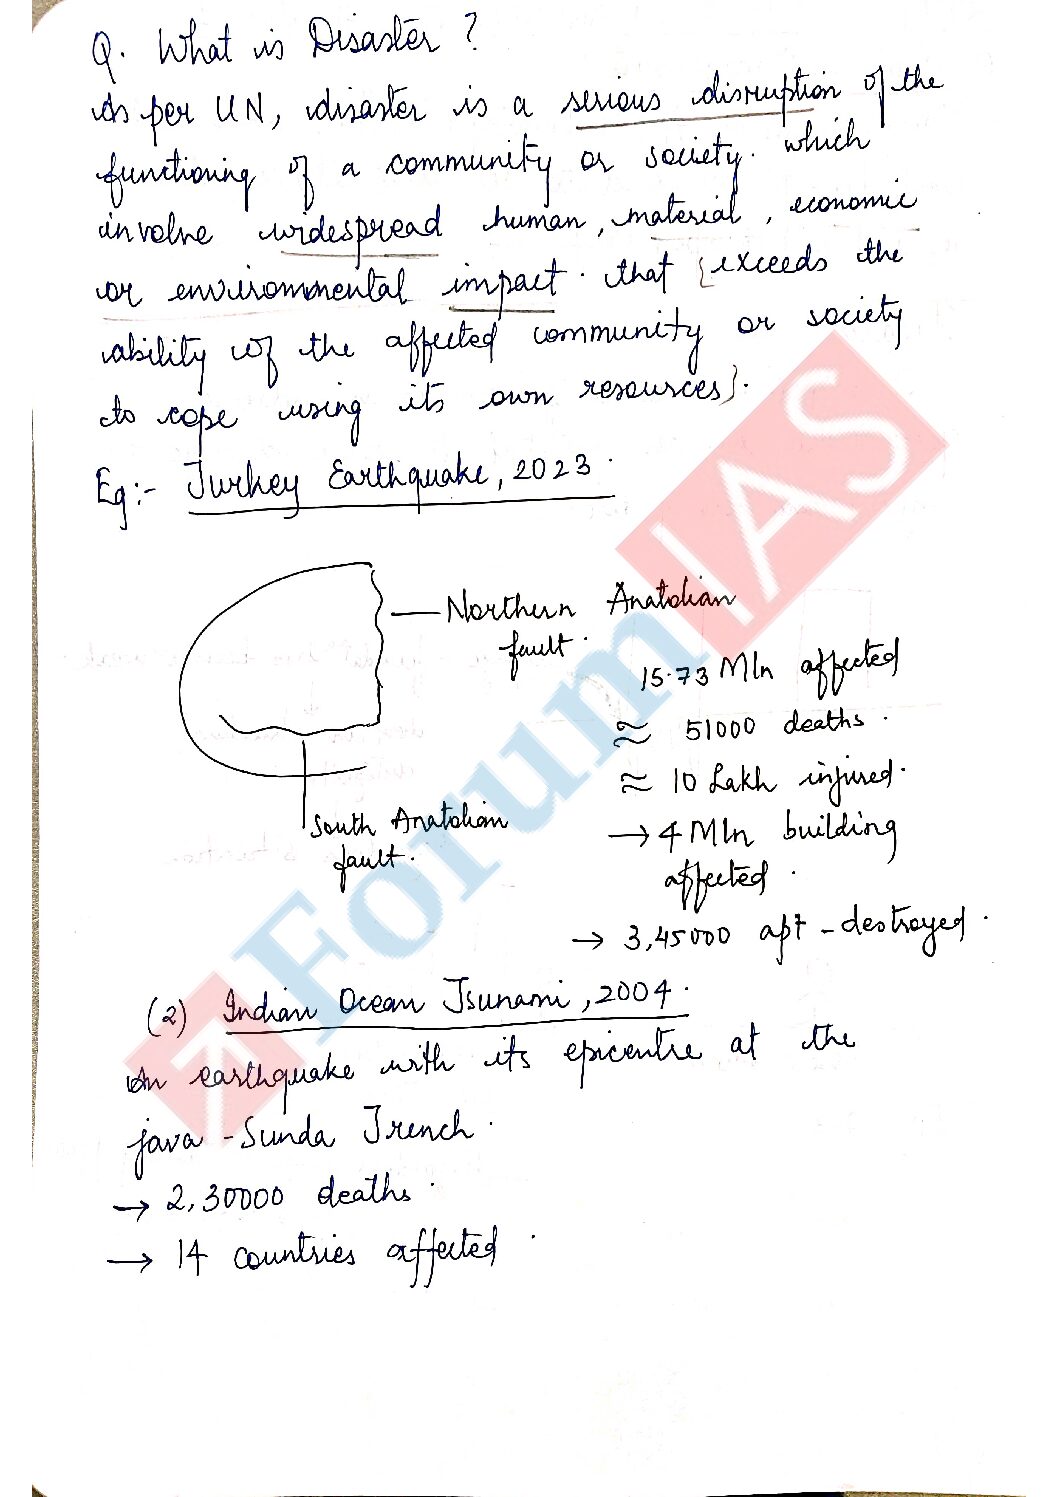 Q. What is Disaster ?
As per UN, disaster is a serious disruption of the
functioning of a community or society. which
involve widespread human, material, economic
or environmental impact. that {exceeds the
ability of the affected community or society
to cope using its own resources}.
Eg:- Turkey Earthquake, 2023.
Northern Anatolian
fault.
15.73 Mln affected
≈ 51000 deaths.
≈ 10 Lakh injured.
South Anatolian
fault.
→ 4 Mln building
affected.
→ 3,45000 apt - destroyed.
(2) Indian Ocean Tsunami, 2004.
An earthquake with its epicentre at the
java - Sunda Trench.
→ 2,30000 deaths.
→ 14 countries affected.
ForumIAS